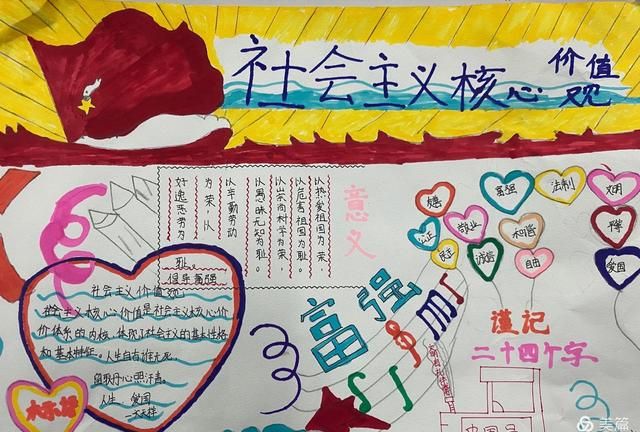 社会主义核心价值观
以热爱祖国为荣，
以危害祖国为耻。
以崇尚科学为荣，
以愚昧无知为耻。
以辛勤劳动
为荣，以
好逸恶劳为
耻。
倡导富强
意义
富强
法制
文明
公正
敬业
和谐
平等
诚信
自由
爱国
社会主义价值观
价体系的内核，体现了社会主义的基本性格
和基本特征。人生自古谁无死，
留取丹心照汗青。
人生，爱国
富强
谨记
二十四个字
美篇